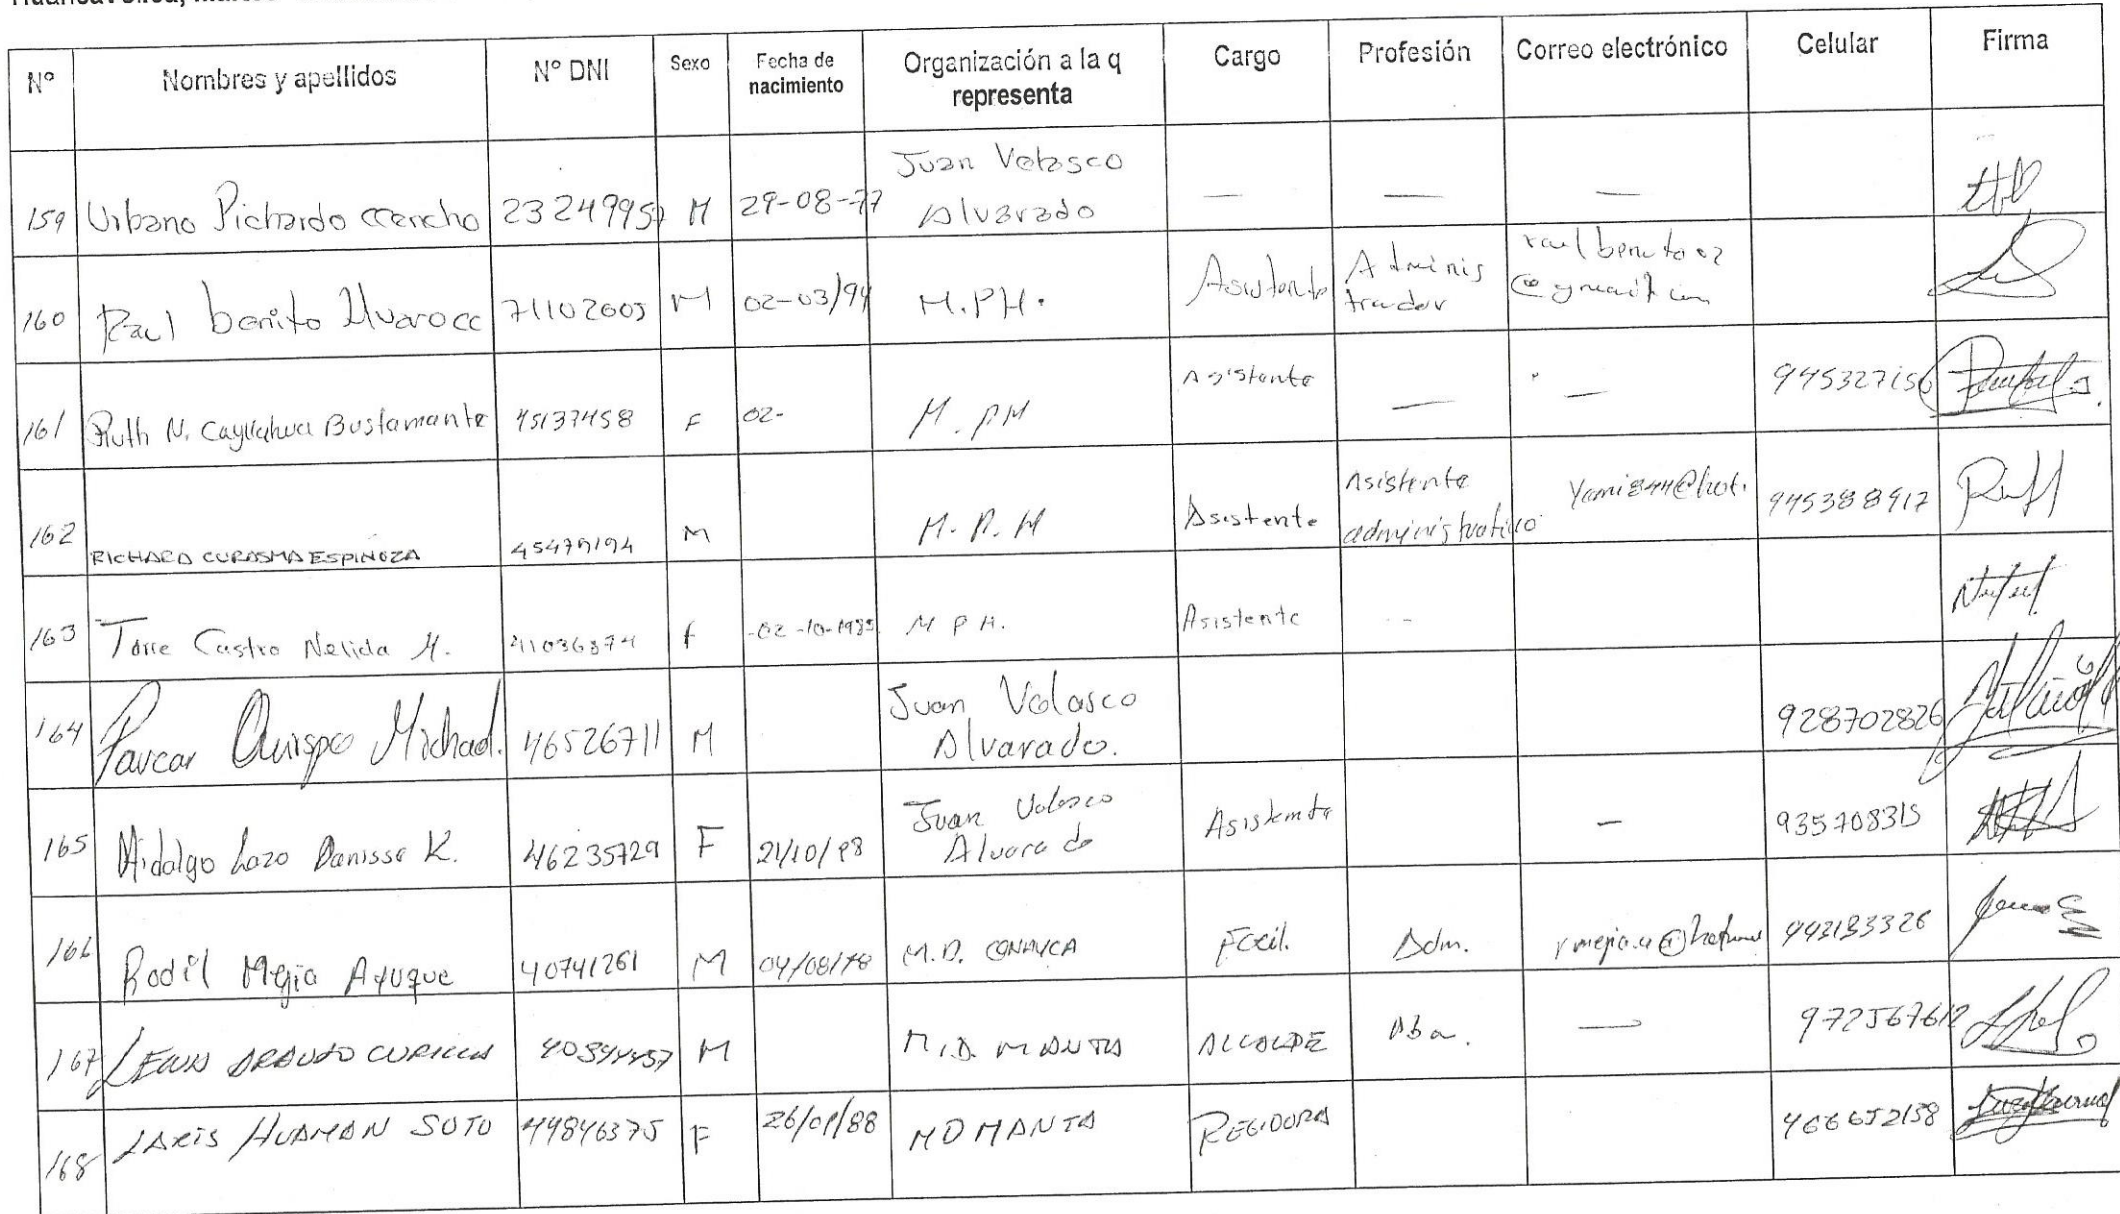 Nº Nombres y apellidos Nº DNI Sexo Fecha de nacimiento Organización a la q representa Cargo Profesión Correo electrónico Celular Firma
159 Urbano Pichardo Ccencho M 29-08-77 Juan Velasco Alvarado — — —
160 Raul benito M 02-03/94 M.PH. Asistente Adminis trador
161 Ruth N. Cayllahua Bustamante 45137458 F 02- M. PM Asistente — —
162 RICHARD CURASMA ESPINOZA 45479194 M M. P. H Asistente Asistente administrativo 945388917
163 Torre Castro Nelida M. f -02-10-1985 M P H. Asistente
164 Paucar Quispe Michael. 46526711 M Juan Velasco Alvarado. 928702826
165 Hidalgo Lazo Danissa K. 46235729 F Juan Velasco Alvarado Asistente — 935708315
166 Rodil Mejia Ayuque 40741261 M 04/08/78 M.D. CONAYCA Facil. Adm.
167 M M.D. MANTA ALCALDE —
168 HUAMAN SOTO 44846375 F 26/01/88 MD MANTA REGIDORA